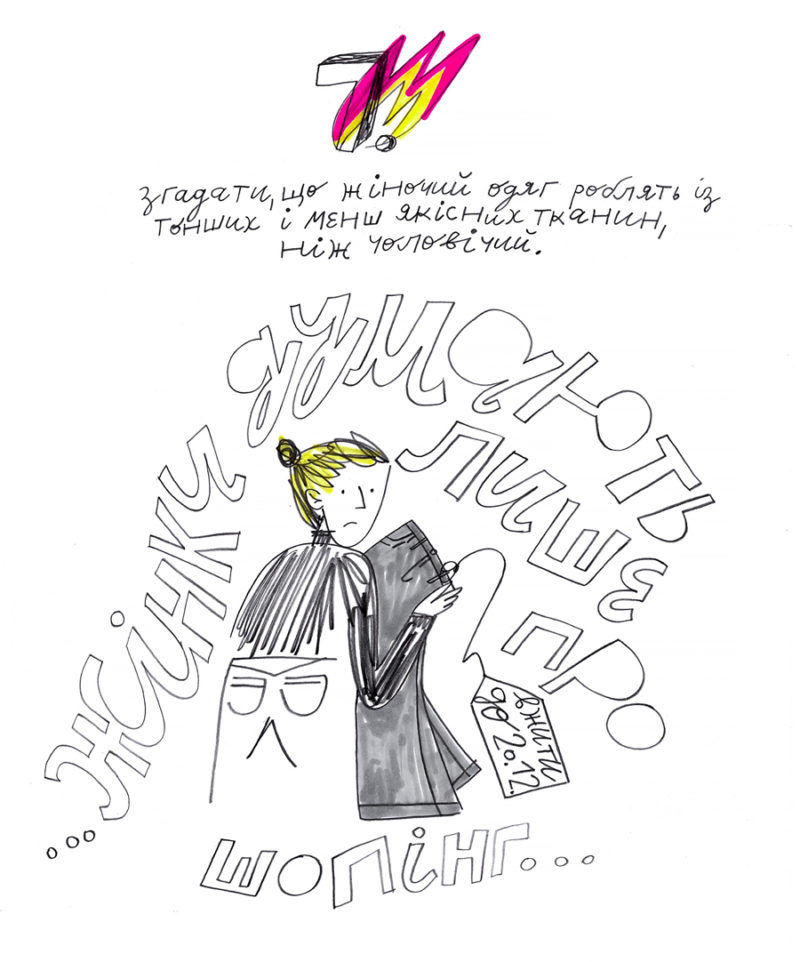 7.
згадати, що жіночий одяг роблять із
тонших і менш якісних тканин,
ніж чоловічий.
...жінки думають
лише
про
вжити
до 20.12.
шопінг...